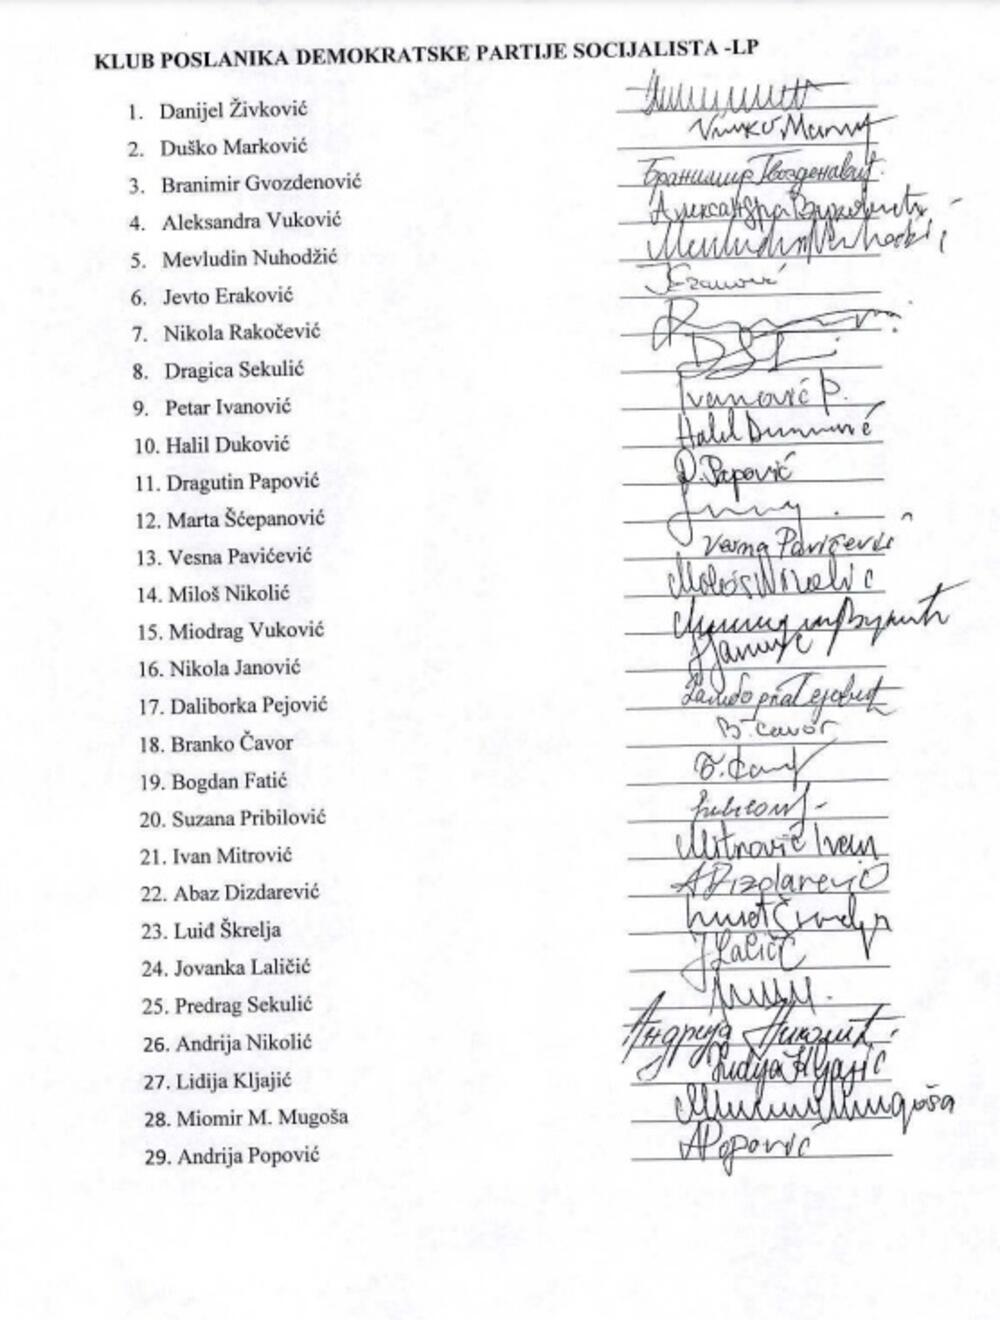 KLUB POSLANIKA DEMOKRATSKE PARTIJE SOCIJALISTA -LP
1. Danijel Živković
2. Duško Marković
3. Branimir Gvozdenović Бранимир Гвозденовић
4. Aleksandra Vuković Александра Вуковић
5. Mevludin Nuhodžić
6. Jevto Eraković
7. Nikola Rakočević
8. Dragica Sekulić
9. Petar Ivanović Ivanović P.
10. Halil Duković Halil
11. Dragutin Papović D. Papović
12. Marta Šćepanović
13. Vesna Pavićević Vesna Pavićević
14. Miloš Nikolić Miloš Nikolić
15. Miodrag Vuković
16. Nikola Janović
17. Daliborka Pejović
18. Branko Čavor B. Čavor
19. Bogdan Fatić
20. Suzana Pribilović
21. Ivan Mitrović Mitrović Ivan
22. Abaz Dizdarević A Dizdarević
23. Luiđ Škrelja
24. Jovanka Laličić J Laličić
25. Predrag Sekulić
26. Andrija Nikolić Андрија Николић
27. Lidija Kljajić Lidija Kljajić
28. Miomir M. Mugoša Mugoša
29. Andrija Popović A Popović